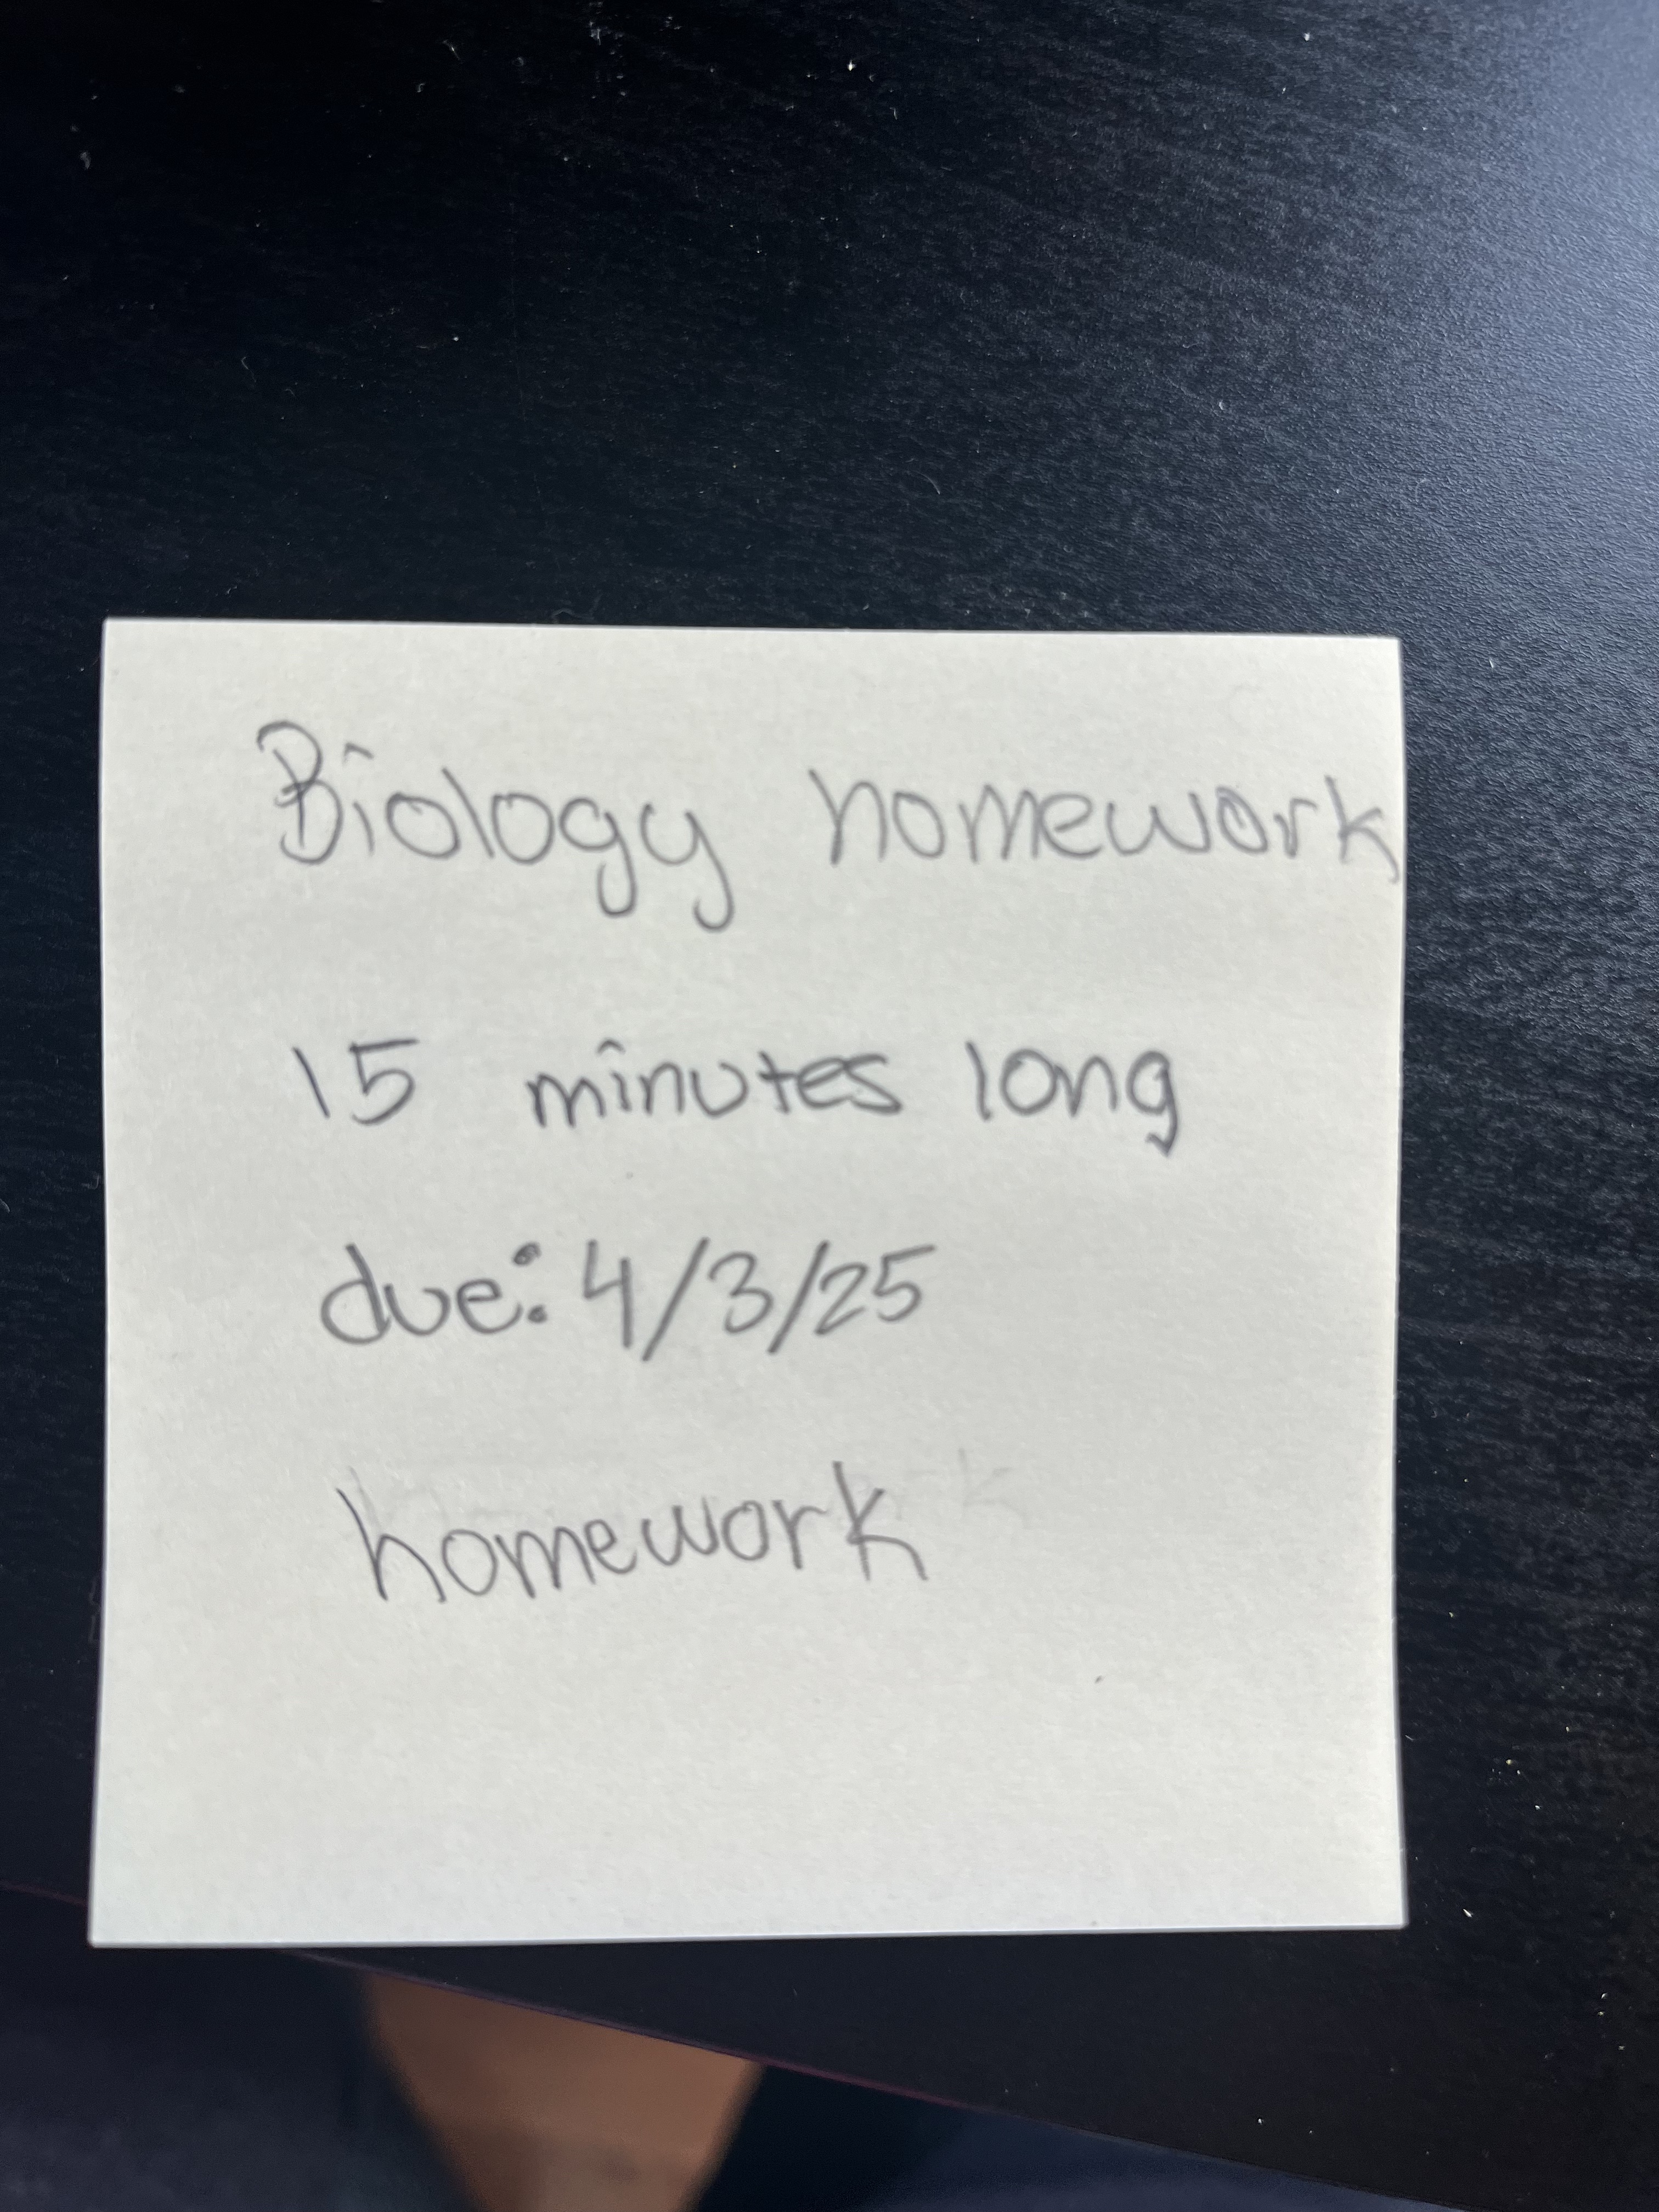 Biology homework
15 minutes long
due: 4/3/25
homework